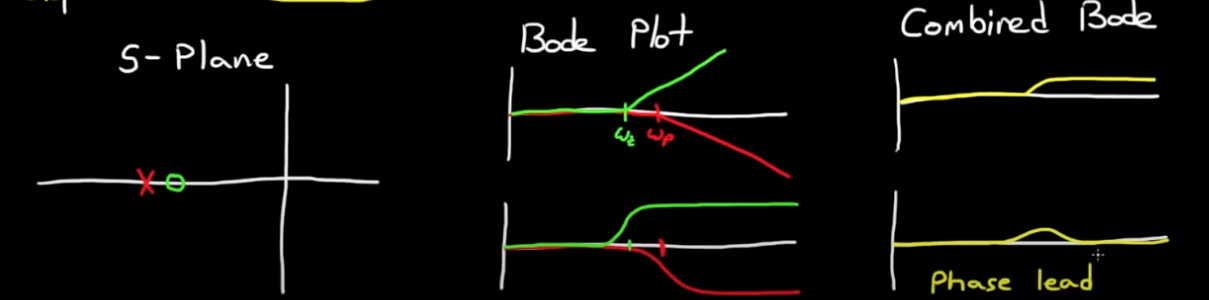 S-Plane
Bode Plot
Combined Bode
ωz ωp
Phase lead